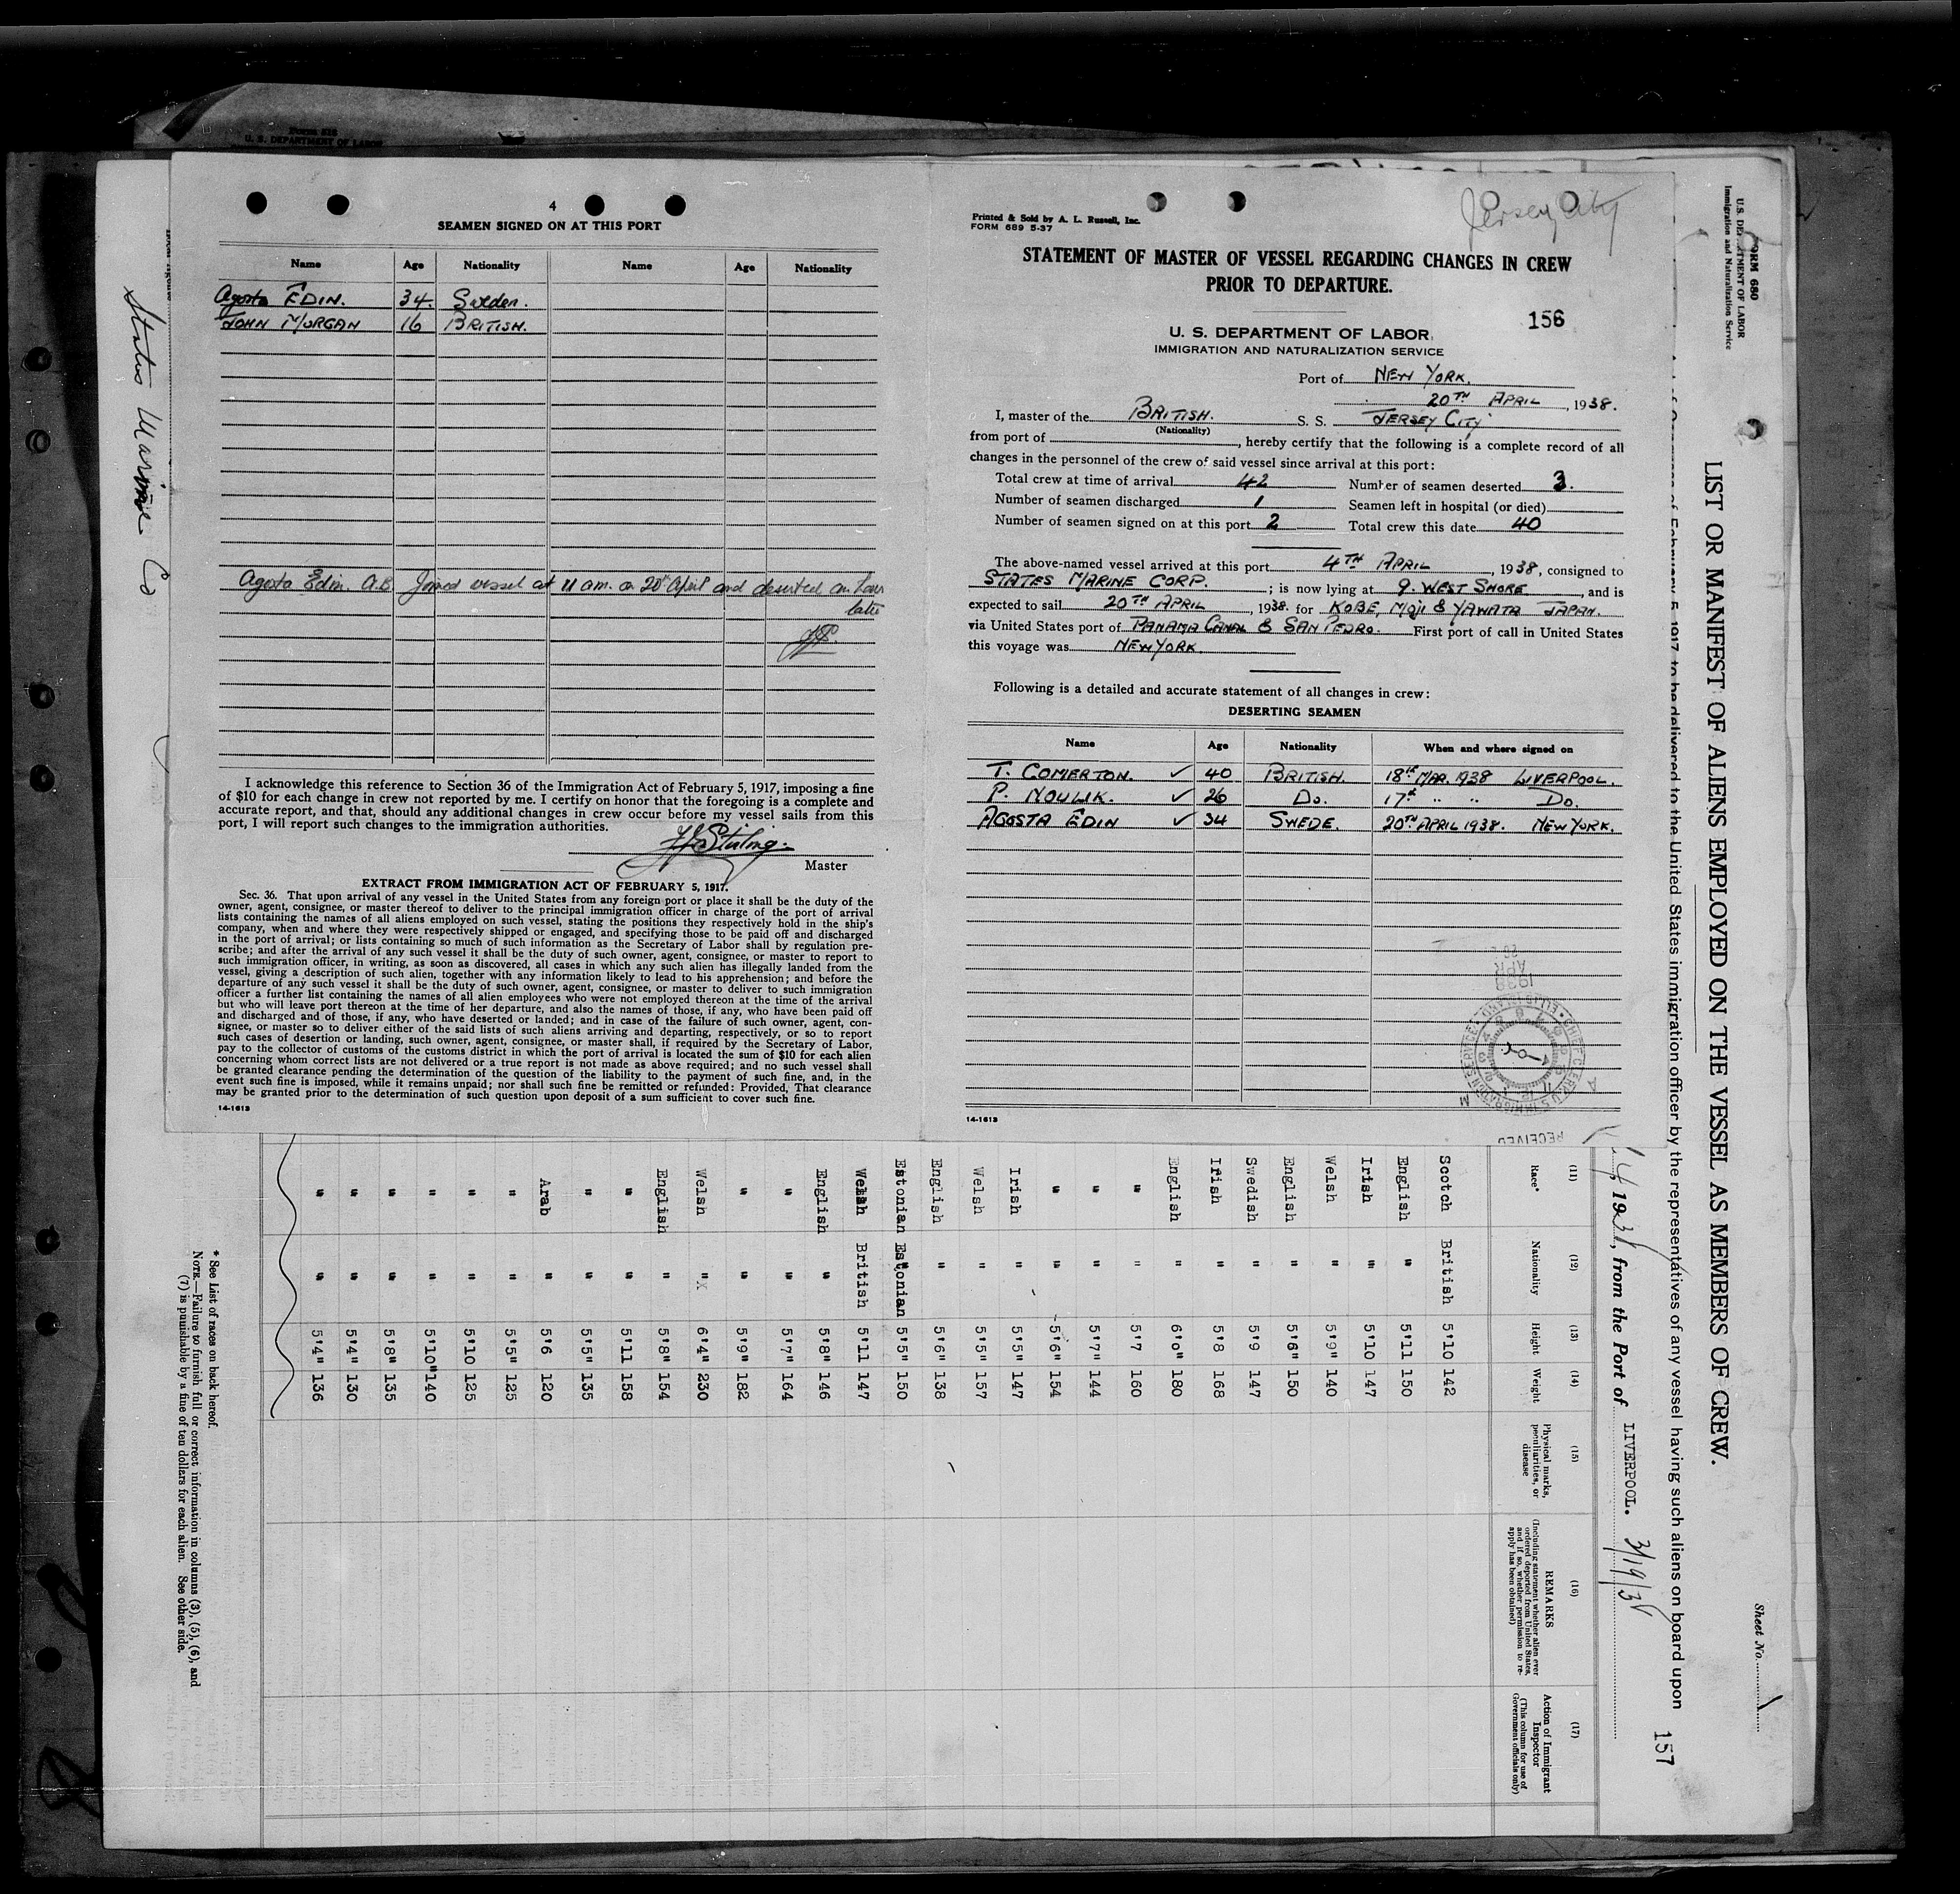 Form 512
U. S. DEPARTMENT OF LABOR
4
SEAMEN SIGNED ON AT THIS PORT
Name Age Nationality Name Age Nationality
Agosta EDIN. 34. Sweden.
JOHN MORGAN 16 BRITISH.
Agosta Edin. A.B. Joined vessel at 11 am. on 20th April and deserted an hour
later
I acknowledge this reference to Section 36 of the Immigration Act of February 5, 1917, imposing a fine
of $10 for each change in crew not reported by me. I certify on honor that the foregoing is a complete and
accurate report, and that, should any additional changes in crew occur before my vessel sails from this
port, I will report such changes to the immigration authorities.
Master
EXTRACT FROM IMMIGRATION ACT OF FEBRUARY 5, 1917.
Sec. 36. That upon arrival of any vessel in the United States from any foreign port or place it shall be the duty of the
owner, agent, consignee, or master thereof to deliver to the principal immigration officer in charge of the port of arrival
lists containing the names of all aliens employed on such vessel, stating the positions they respectively hold in the ship's
company, when and where they were respectively shipped or engaged, and specifying those to be paid off and discharged
in the port of arrival; or lists containing so much of such information as the Secretary of Labor shall by regulation pre-
scribe; and after the arrival of any such vessel it shall be the duty of such owner, agent, consignee, or master to report to
such immigration officer, in writing, as soon as discovered, all cases in which any such alien has illegally landed from the
vessel, giving a description of such alien, together with any information likely to lead to his apprehension; and before the
departure of any such vessel it shall be the duty of such owner, agent, consignee, or master to deliver to such immigration
officer a further list containing the names of all alien employees who were not employed thereon at the time of the arrival
but who will leave port thereon at the time of her departure, and also the names of those, if any, who have been paid off
and discharged and of those, if any, who have deserted or landed; and in case of the failure of such owner, agent, con-
signee, or master so to deliver either of the said lists of such aliens arriving and departing, respectively, or so to report
such cases of desertion or landing, such owner, agent, consignee, or master shall, if required by the Secretary of Labor,
pay to the collector of customs of the customs district in which the port of arrival is located the sum of $10 for each alien
concerning whom correct lists are not delivered or a true report is not made as above required; and no such vessel shall
be granted clearance pending the determination of the question of the liability to the payment of such fine, and, in the
event such fine is imposed, while it remains unpaid; nor shall such fine be remitted or refunded: Provided, That clearance
may be granted prior to the determination of such question upon deposit of a sum sufficient to cover such fine.
14-1613
States Marine Co
Jersey City
Printed & Sold by A. L. Russell, Inc.
FORM 689 5-37
STATEMENT OF MASTER OF VESSEL REGARDING CHANGES IN CREW
PRIOR TO DEPARTURE.
156
U. S. DEPARTMENT OF LABOR
IMMIGRATION AND NATURALIZATION SERVICE
Port of NEW YORK.
20TH APRIL, 1938.
I, master of the BRITISH. S. S. JERSEY CITY
(Nationality)
from port of , hereby certify that the following is a complete record of all
changes in the personnel of the crew of said vessel since arrival at this port:
Total crew at time of arrival 42 Number of seamen deserted 3.
Number of seamen discharged 1 Seamen left in hospital (or died)
Number of seamen signed on at this port 2 Total crew this date 40
The above-named vessel arrived at this port 4TH APRIL, 1938, consigned to
STATES MARINE CORP. ; is now lying at 9. WEST SHORE, and is
expected to sail 20TH APRIL, 1938. for KOBE, MOJI & YAWATA JAPAN.
via United States port of PANAMA CANAL & SAN PEDRO. First port of call in United States
this voyage was NEW YORK.
Following is a detailed and accurate statement of all changes in crew:
DESERTING SEAMEN
Name Age Nationality When and where signed on
T. COMERTON. ✓ 40 BRITISH. 18th MAR. 1938 LIVERPOOL.
P. NOULIK. ✓ 26 Do. 17th " " Do.
AGOSTA EDIN ✓ 34 SWEDE. 20TH APRIL 1938. NEW YORK.
1938
APR
20
RECEIVED
14-1613
FORM 680
U. S. DEPARTMENT OF LABOR
Immigration and Naturalization Service
Sheet No. 1
LIST OR MANIFEST OF ALIENS EMPLOYED ON THE VESSEL AS MEMBERS OF CREW.
February 5, 1917, to be delivered to the United States immigration officer by the representatives of any vessel having such aliens on board upon
157
4, 1938, from the Port of LIVERPOOL. 3/19/38
(11) (12) (13) (14) (15) (16) (17)
Race* Nationality Height Weight Physical marks, peculiarities, or disease REMARKS (Including statement whether alien ever ordered deported from United States, and if so, whether permission to re-apply has been obtained) Action of Immigrant Inspector (This column for use of Government officials only)
Scotch British 5'10 142
English " 5'11 150
Irish " 5'10 147
Welsh " 5'9" 140
English " 5'6" 150
Swedish " 5'9 147
Irish " 5'8 168
English " 6'0" 180
" " 5'7 160
" " 5'7" 144
" " 5'6" 154
Irish " 5'5" 147
Welsh " 5'5" 157
English " 5'6" 138
Estonian Estonian 5'5" 150
Welsh British 5'11 147
English " 5'8" 146
" " 5'7" 164
" " 5'9" 182
Welsh " 6'4" 230
English " 5'8" 154
" " 5'11 158
" " 5'5" 135
Arab " 5'6 120
" " 5'5" 125
" " 5'10 125
" " 5'10" 140
" " 5'8" 135
" " 5'4" 130
" " 5'4" 136
* See List of races on back hereof.
NOTE.—Failure to furnish full or correct information in columns (3), (5), (6), and
(7) is punishable by a fine of ten dollars for each alien. See other side.